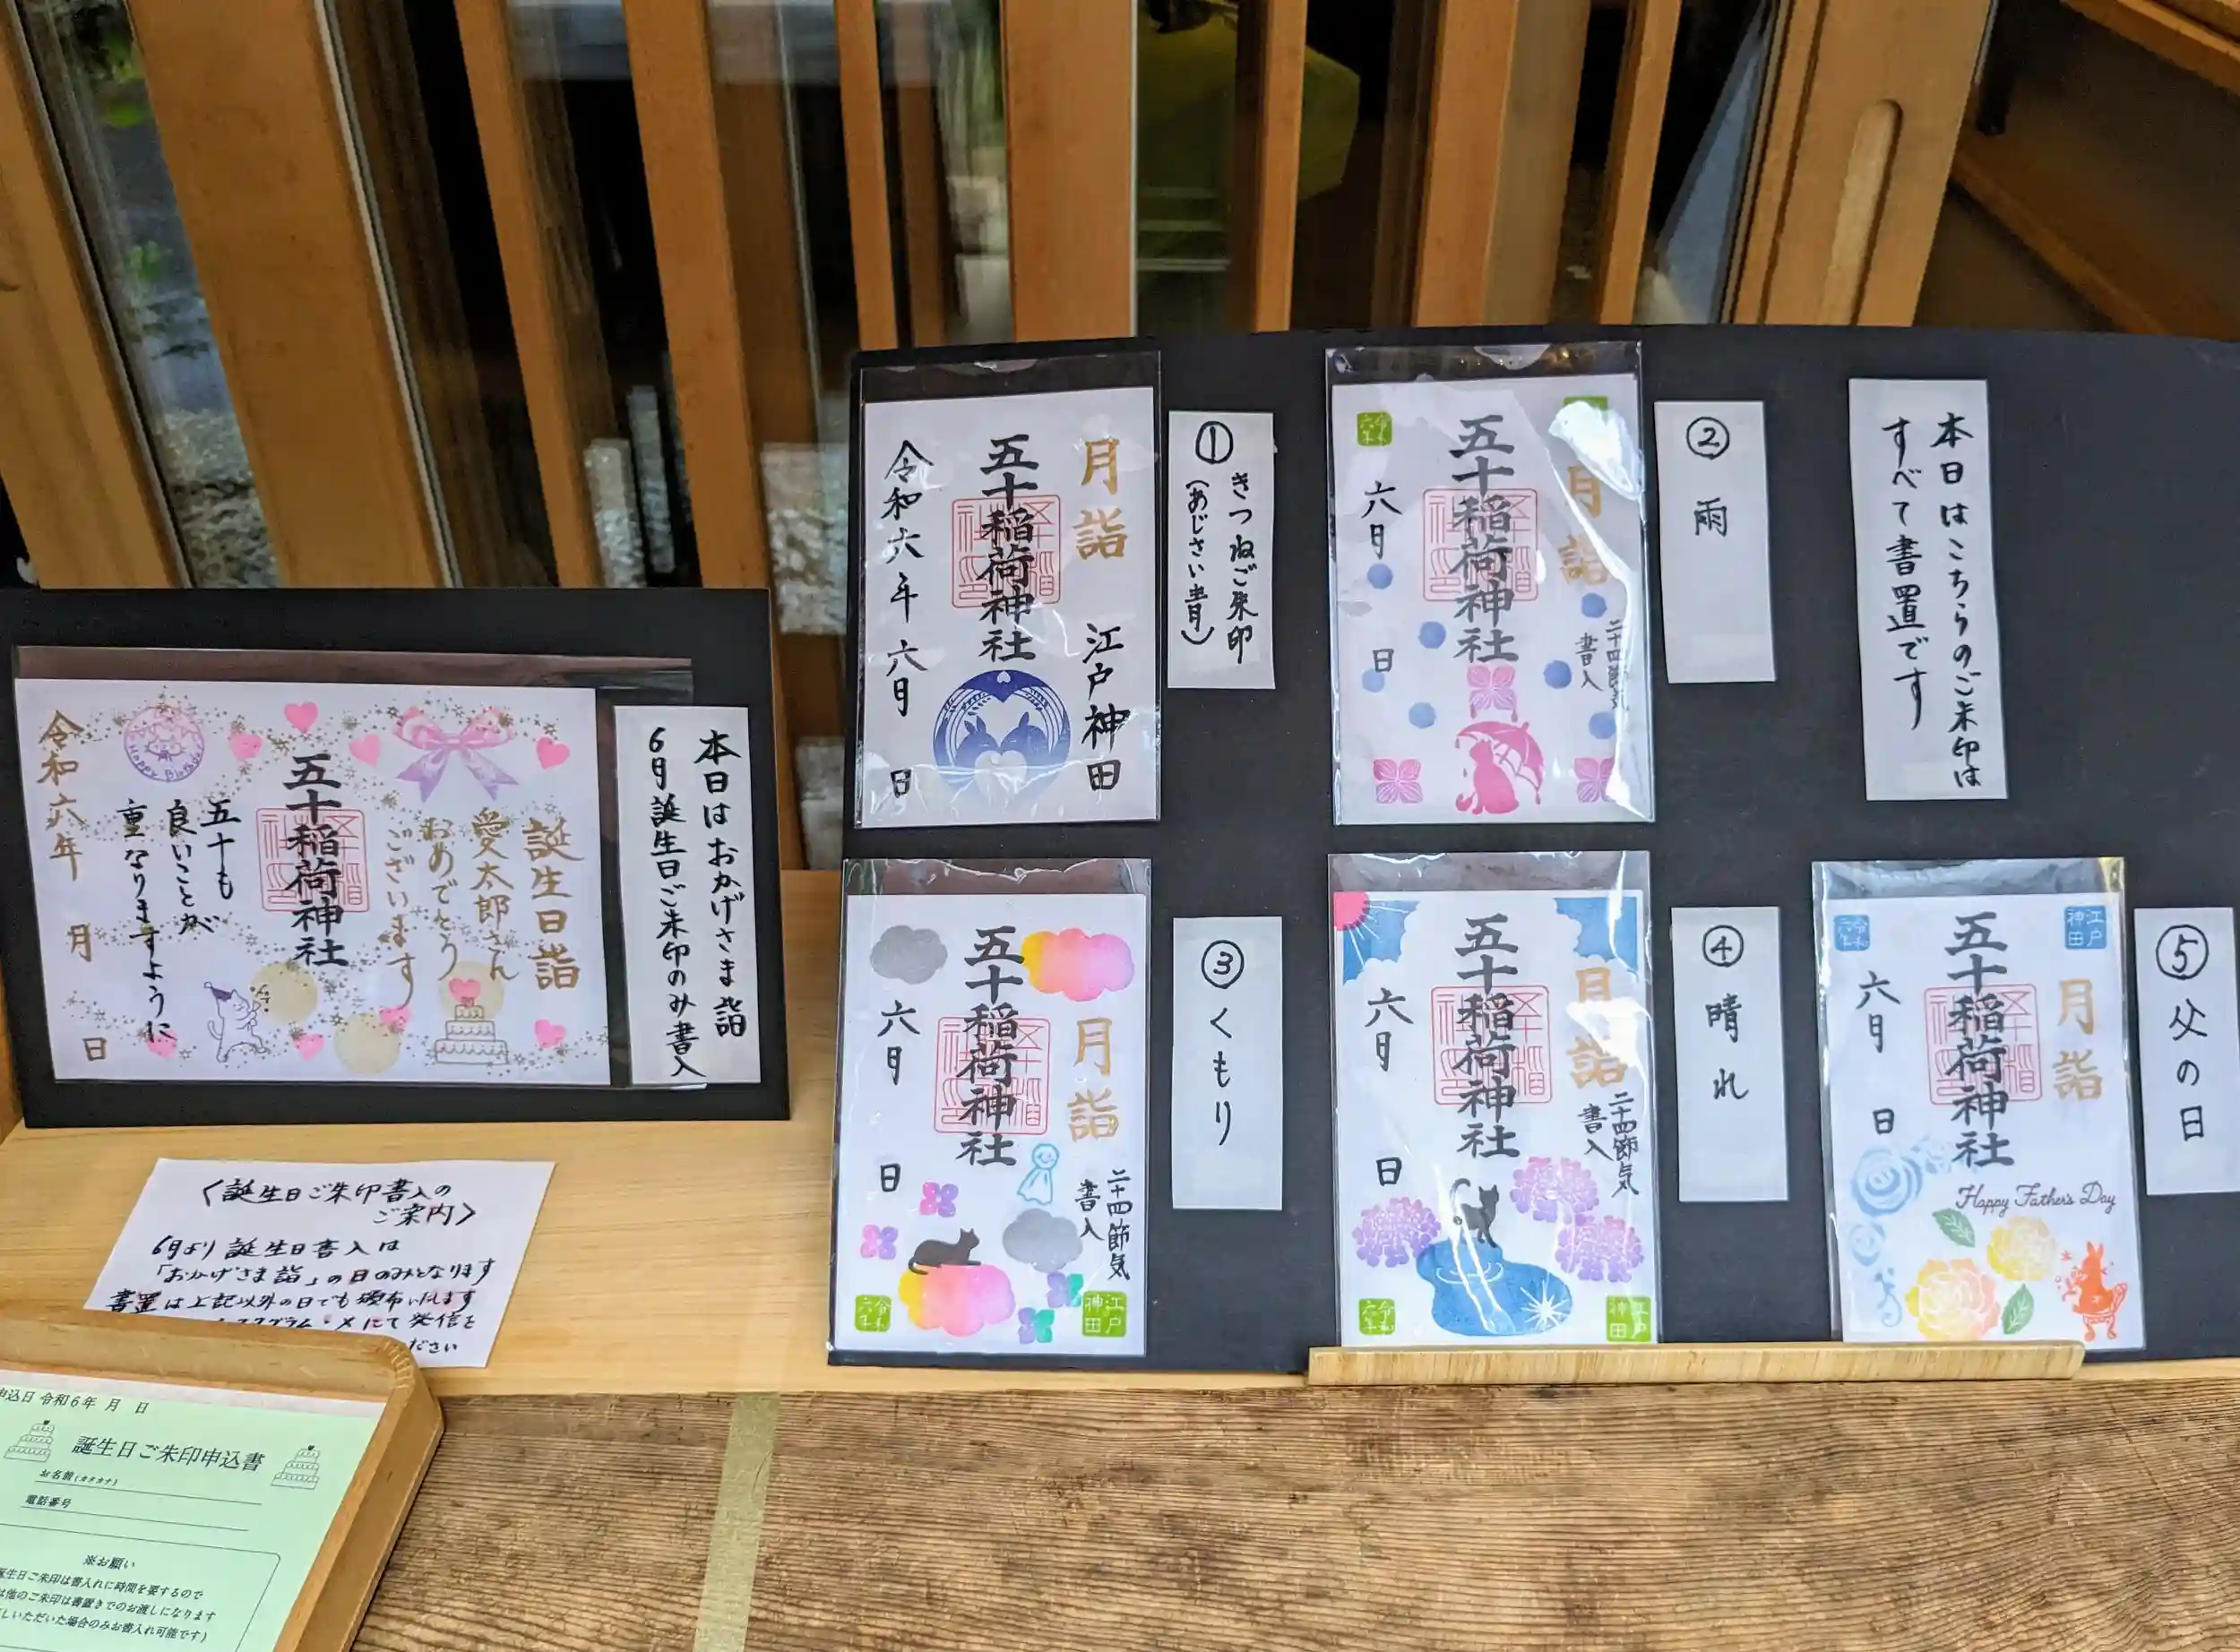 令和六年
月
日
Happy Birthday
五十も
良いことが
重なりますように
五十稲荷神社
誕生日詣
愛太郎さん
おめでとう
ございます
本日はおかげさま詣
6月誕生日ご朱印のみ書入
〈誕生日ご朱印書入の
ご案内〉
6月より誕生日書入は
「おかげさま詣」の日のみとなります
書置は上記以外の日でも頒布いたします
にて発信を
ださい
申込日 令和6年 月 日
誕生日ご朱印申込書
お名前(カタカナ)
電話番号
※お願い
誕生日ご朱印は書入れに時間を要するので
は他のご朱印は書置きでのお渡しになります
しいただいた場合のみお書入れ可能です)
月詣
江戸神田
五十稲荷神社
令和六年 六月 日
① きつねご朱印
(あじさい青)
月詣
二十四節気
書入
五十稲荷神社
令和六年
六月 日
② 雨
本日はこちらのご朱印は
すべて書置です
月詣
二十四節気
書入
五十稲荷神社
六月 日
令和六年
江戸神田
③ くもり
月詣
二十四節気
書入
五十稲荷神社
六月 日
令和六年
江戸神田
④ 晴れ
江戸神田
月詣
五十稲荷神社
令和六年
六月 日
Happy Father's Day
⑤ 父の日